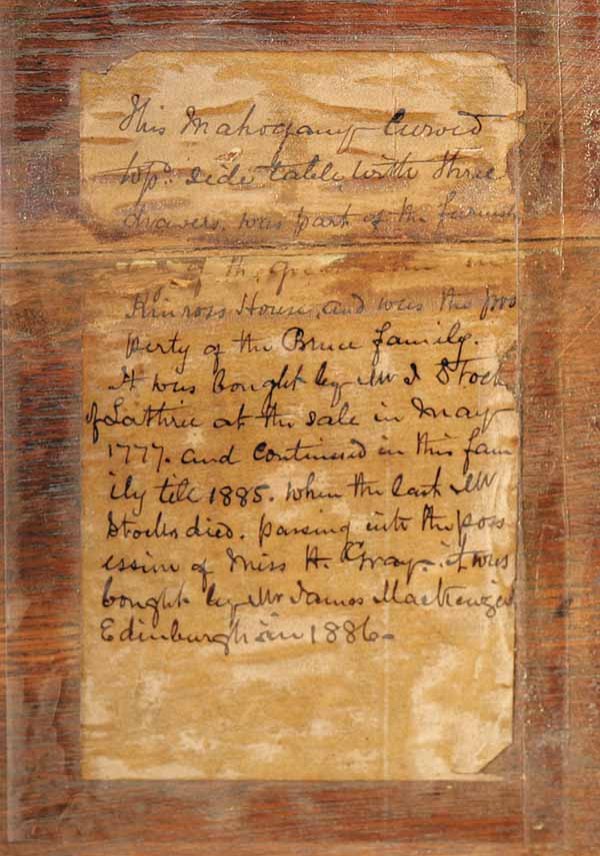 This Mahogany Curved
top. side table, with three
drawers, was part of the furnish
of the
Kinross House, and was the pro
perty of the Bruce family.
It was bought by Mr J Stock
of Lathrie at the sale in May
1777. and continued in this fam
ily till 1885. when the last Mr
Stocks died. passing into the poss
ession of Miss H. Gray. it was
bought by Mr James Mackenzie
Edinburgh in 1886.